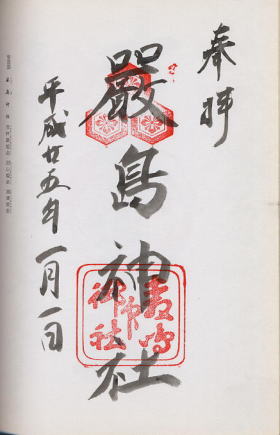 奉拝
嚴島神社
嚴島
御印
神社
平成廿五年一月一日